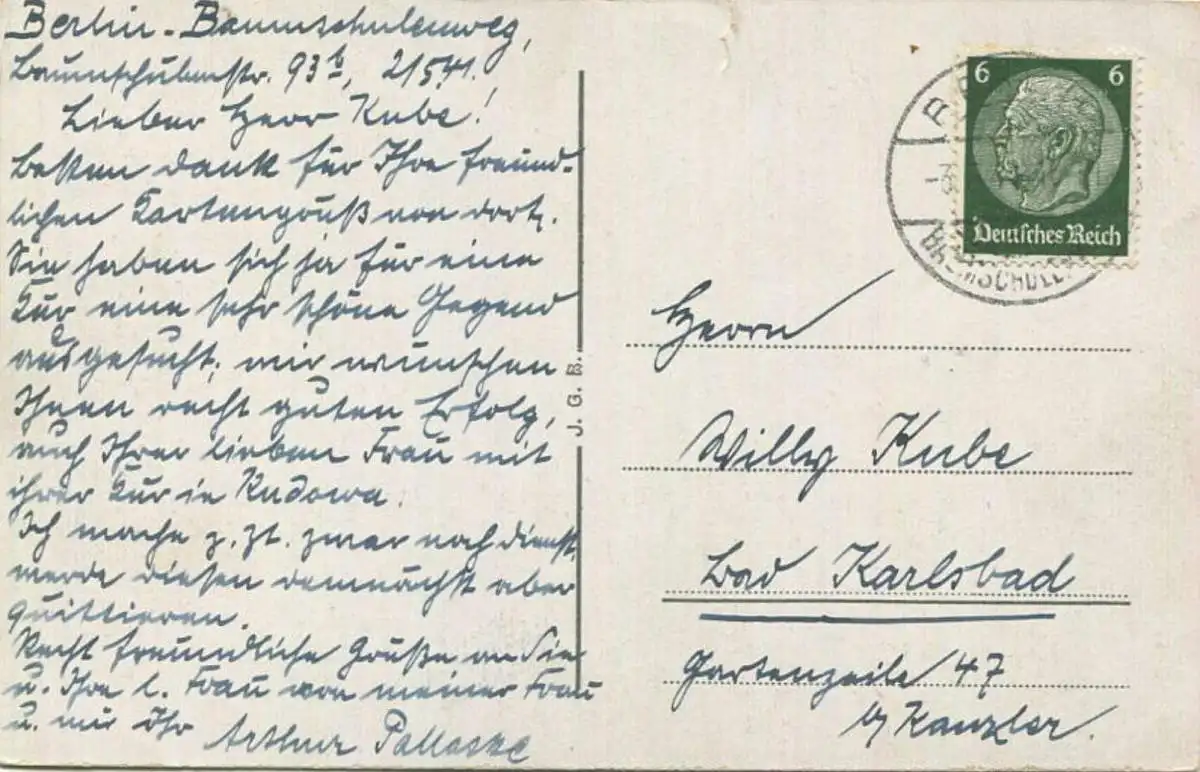 Berlin-Baumschulenweg,
Baumschulenstr. 93b, 2/5.41.
Lieber Herr Kube!
Besten Dank für Ihre freund-
lichen Kartengruß von dort.
Sie haben sich ja für eine
Kur eine sehr schöne Gegend
ausgesucht; wir wünschen
Ihnen recht guten Erfolg,
auch Ihrer lieben Frau mit
ihrer Kur in Kudowa.
Ich mache z. Zt. zwar noch Dienst,
werde diesen demnächst aber
quittieren.
Recht freundliche Grüße an Sie
u. Ihre l. Frau von meiner Frau
u. mir Ihr
Arthur
J. G. B.
6 6
Deutsches Reich
Herrn
Willy Kube
Bad Karlsbad
Gartenzeile 47
b/ Kanzler.